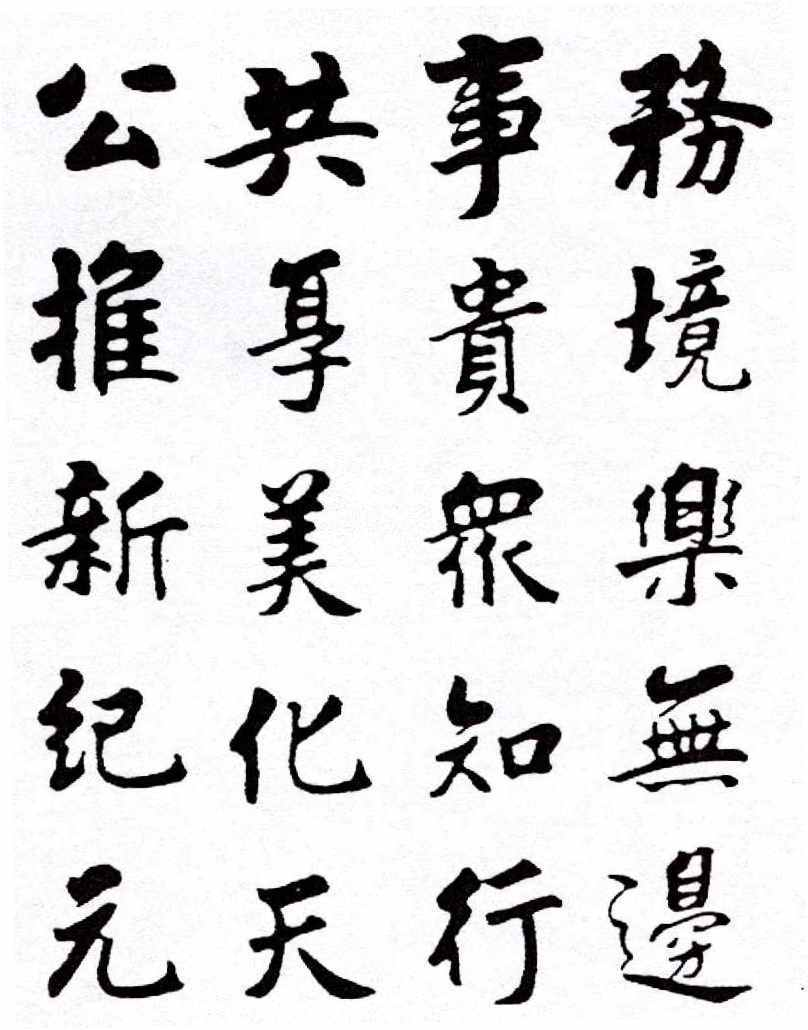 公推新紀元
共享美化天
事貴眾知行
務境樂無邊